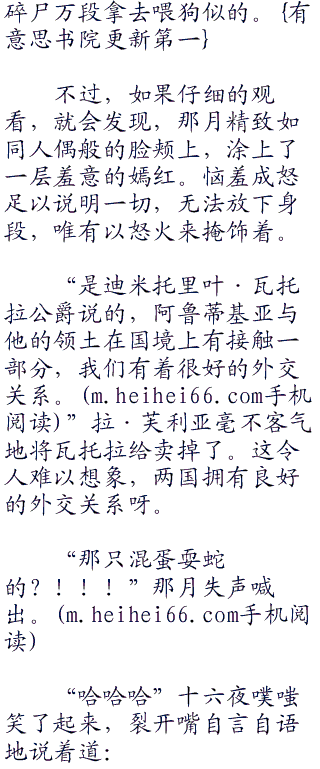 碎尸万段拿去喂狗似的。{有
意思书院更新第一}
不过，如果仔细的观
看，就会发现，那月精致如
同人偶般的脸颊上，涂上了
一层羞意的嫣红。恼羞成怒
足以说明一切，无法放下身
段，唯有以怒火来掩饰着。
“是迪米托里叶·瓦托
拉公爵说的，阿鲁蒂基亚与
他的领土在国境上有接触一
部分，我们有着很好的外交
关系。(m.heihei66.com手机
阅读)”拉·芙利亚毫不客气
地将瓦托拉给卖掉了。这令
人难以想象，两国拥有良好
的外交关系呀。
“那只混蛋耍蛇
的？！！！”那月失声喊
出。(m.heihei66.com手机阅
读)
“哈哈哈”十六夜噗嗤
笑了起来，裂开嘴自言自语
地说着道：